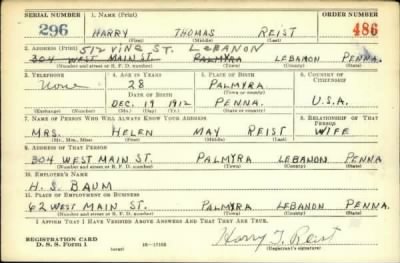 SERIAL NUMBER 1. NAME (Print) ORDER NUMBER
296 HARRY THOMAS REIST 486
(First) (Middle) (Last)
512 VINE ST. LEBANON
2. ADDRESS (Print)
304 WEST MAIN ST. PALMYRA LEBANON PENNA.
(Number and street or R. F. D. number) (Town) (County) (State)
3. TELEPHONE 4. AGE IN YEARS 5. PLACE OF BIRTH 6. COUNTRY OF CITIZENSHIP
None 28 PALMYRA
DATE OF BIRTH (Town or county)
DEC. 19 1912 PENNA. U.S.A.
(Exchange) (Number) (Mo.) (Day) (Yr.) (State or country)
7. NAME OF PERSON WHO WILL ALWAYS KNOW YOUR ADDRESS 8. RELATIONSHIP OF THAT PERSON
MRS. HELEN MAY REIST WIFE
(Mr., Mrs., Miss) (First) (Middle) (Last)
9. ADDRESS OF THAT PERSON
304 WEST MAIN ST. PALMYRA LEBANON PENNA
(Number and street or R. F. D. number) (Town) (County) (State)
10. EMPLOYER'S NAME
H. S. BAUM
11. PLACE OF EMPLOYMENT OR BUSINESS
62 WEST MAIN ST. PALMYRA LEBANON PENNA.
(Number and street or R. F. D. number) (Town) (County) (State)
I AFFIRM THAT I HAVE VERIFIED ABOVE ANSWERS AND THAT THEY ARE TRUE.
REGISTRATION CARD
D. S. S. Form 1 Harry T. Reist
(Registrant's signature)